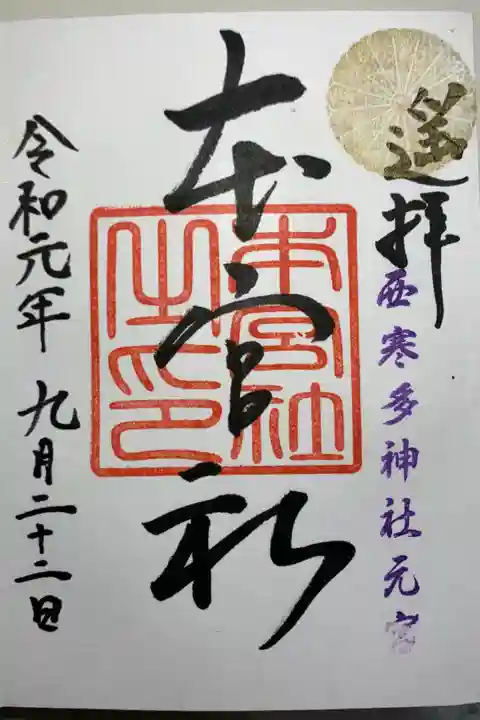 遥拝
西寒多神社元宮
本宮社
本宮社之印
令和元年九月二十二日